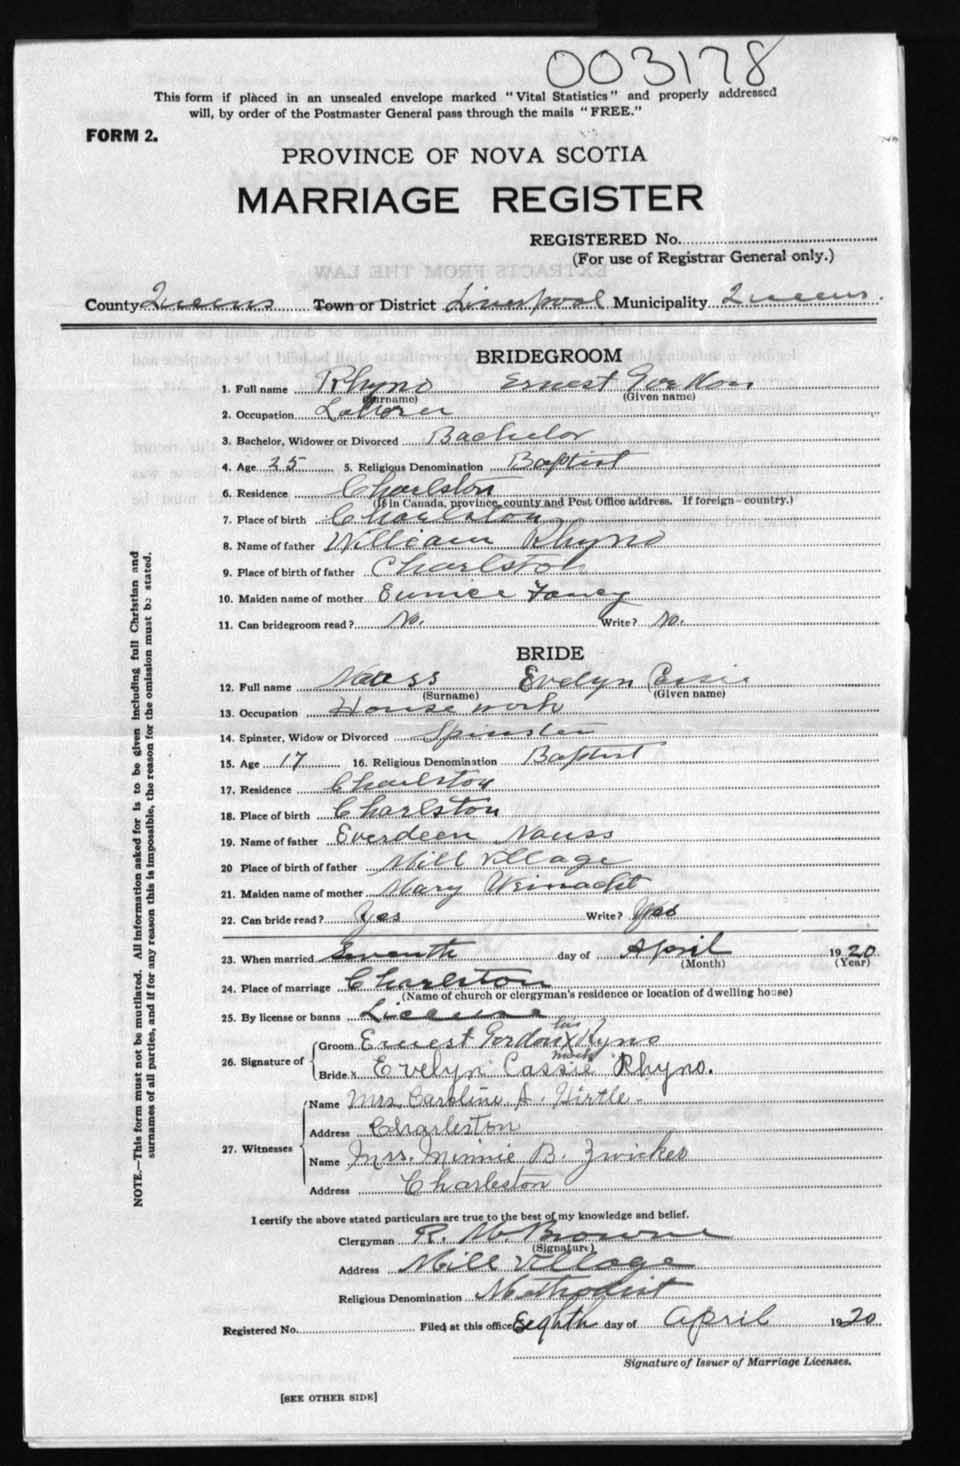 003178
This form if placed in an unsealed envelope marked "Vital Statistics" and properly addressed
will, by order of the Postmaster General pass through the mails "FREE."
FORM 2.
PROVINCE OF NOVA SCOTIA
MARRIAGE REGISTER
REGISTERED No.
(For use of Registrar General only.)
County Queens Town or District Liverpool Municipality Queens.
BRIDEGROOM
1. Full name Rhyno Ernest Gordon
(Surname) (Given name)
2. Occupation Laborer
3. Bachelor, Widower or Divorced Bachelor
4. Age 25 5. Religious Denomination Baptist
6. Residence Charlston
(If in Canada, province, county and Post Office address. If foreign—country.)
7. Place of birth Charlston
8. Name of father William Rhyno
9. Place of birth of father Charlston
10. Maiden name of mother Eunice Fancy
11. Can bridegroom read? No. Write? No.
BRIDE
12. Full name Nauss Evelyn Cassie
(Surname) (Given name)
13. Occupation House work
14. Spinster, Widow or Divorced Spinster
15. Age 17 16. Religious Denomination Baptist
17. Residence Charlston
18. Place of birth Charlston
19. Name of father Everdeen Nauss
20 Place of birth of father Mill Village
21. Maiden name of mother Mary Weinacht
22. Can bride read? Yes Write? Yes
23. When married Seventh day of April 1920
(Month) (Year)
24. Place of marriage Charlston
(Name of church or clergyman's residence or location of dwelling house)
25. By license or banns License
26. Signature of
Groom Ernest Gordon his X mark Ryno
Bride x Evelyn Cassie Rhyno.
27. Witnesses
Name Mrs. Caroline A. Hirtle.
Address Charleston
Name Mrs. Minnie B. Zwicker
Address Charleston
I certify the above stated particulars are true to the best of my knowledge and belief.
Clergyman R. M. Browne
(Signature)
Address Mill Village
Religious Denomination Methodist
Registered No. Filed at this office Eighth day of April 1920
Signature of Issuer of Marriage Licenses.
[SEE OTHER SIDE]
NOTE.—This form must not be mutilated. All information asked for is to be given including full Christian and
surnames of all parties, and if for any reason this is impossible, the reason for the omission must be stated.